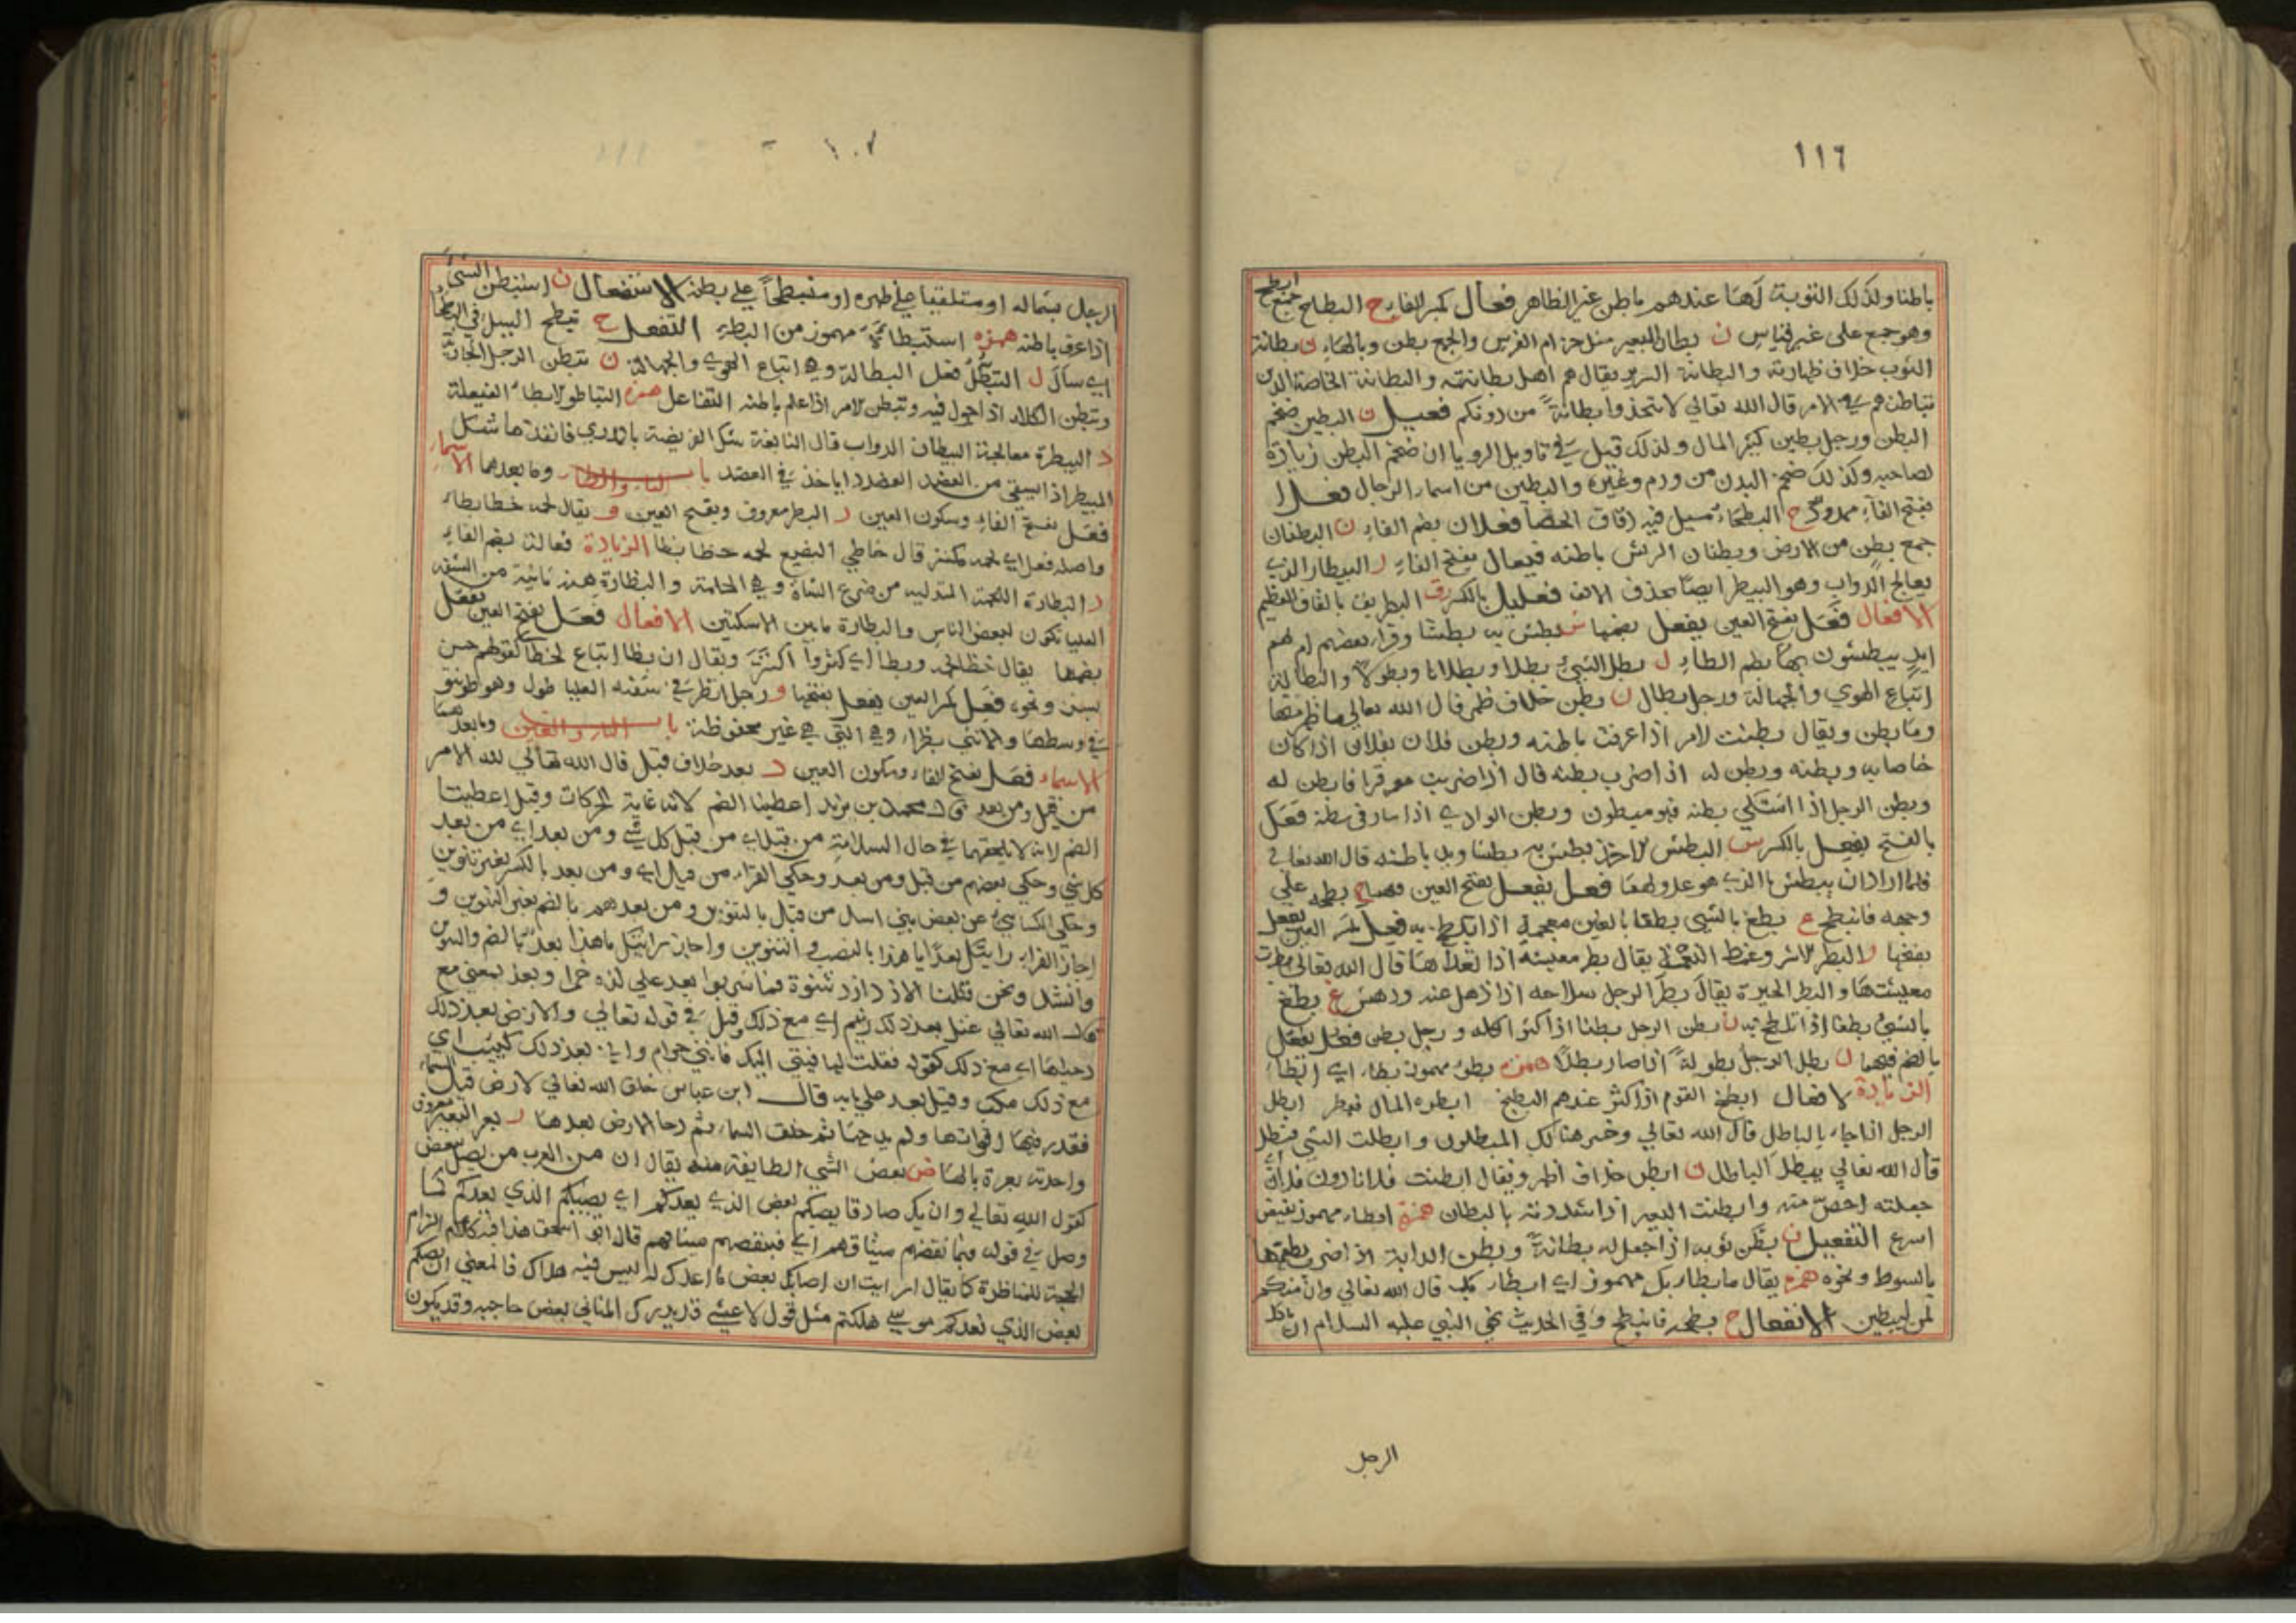 ١١٦
باطنا ولذلك التوبة لها عندهم باطن غير الظاهر فعال بكسر الفاء ح البطاح جمع ابطح
وهو جمع على غير قياس ن بطان البعير مثل حزام الفرس والجمع بطن وبالهاء ن بطانة
الثوب خلاف ظهارته والبطانة السرير يقال هم اهل بطانته والبطانة الخاصة الذين
تباطنهم في الامر قال الله تعالى لا تتخذوا بطانة من دونكم فعيل ن البطين ضخم
البطن ورجل بطين كثير المال ولذلك قيل في تاويل الرويا ان ضخم البطن زيادة
لصاحبه وكذلك ضخم البدن من ورم وغيره والبطين من اسماء الرجال فعلاء
بفتح الفاء ممدود ح البطحاء مسيل فيه دقاق الحصا فعلان بضم الفاء ن البطنان
جمع بطن من الارض وبطنان الريش باطنه فيعال بفتح الفاء ر البيطار الذي
يعالج الدواب وهو البيطر ايضا بحذف الالف فعليل بالكسر ق البطريق بالقاف العظيم
الافعال فعل بفتح العين يفعل بضمها ش بطش به بطشا وقرا بعضهم ام لهم
ايد يبطشون بها بضم الطاء ل بطل الشيء بطلا وبطلانا وبطولا والبطالة
اتباع الهوي والجهالة ورجل بطال ن بطن خلاف ظهر قال الله تعالى ما ظهر منها
وما بطن ويقال بطنت الامر اذا عرفت باطنه وبطن فلان بفلان اذا كان
خاصا به وبطنه وبطن له اذا ضرب بطنه قال اذا ضربت موقرا فابطن له
وبطن الرجل اذا اشتكي بطنه فهو مبطون وبطن الوادي اذا سار في بطنه فعل
بالفتح يفعل بالكسر ش البطش الاخذ بطش به بطشا وبه باطشه قال الله تعالى
فلما اراد ان يبطش بالذي هو عدو لهما فعل يفعل بفتح العين فيهما ح بطحه علي
وجهه فانبطح غ بطغ بالشيى بطغا بالغين معجمة اذا تلطخ به فعل بكسر العين يفعل
بفتحها ر البطر الاشر وغمط النعمة يقال بطر معيشته اذا تعداها قال الله تعالى بطرت
معيشتها والبطر الحيرة يقال بطر الرجل سلاحه اذا ذهل عنه ودهش غ بطغ
بالشيئ بطغا اذا تلطخ به ن بطن الرجل بطنا اذا كثر اكله ورجل بطن فعل يفعل
بالضم فيهما ل بطل الرجل بطولة اذا صار بطلا همزه بطؤ مهموز بطاء اي ابطا
الزيادة الافعال ابطخ القوم اذا كثر عندهم البطيخ ابطره المال فبطر ابطل
الرجل اذا جاء بالباطل قال الله تعالى وخسر هنالك المبطلون وابطلت الشي فبطل
قال الله تعالى يبطل الباطل ن ابطن خلاف اظهر ويقال ابطنت فلانا دون فلان
جعلته اخص منه وابطنت البعير اذا شددته بالبطان همزه ابطاء مهموز نقيض
اسرع التفعيل ن بطن ثوبه اذا جعل له بطانة وبطن الدابة اذا ضرب بطنها
بالسوط ونحوه همزه يقال ما بطا بك مهموز اي ابطا بك قال الله تعالى وان منكم
لمن ليبطين الانفعال ح بطحه فانبطح وفي الحديث نهي النبي عليه السلام ان ياكل
الرجل
١٠٧
الرجل بشماله او مستلقيا على ظهره او منبطحا على بطنه الاستفعال ن استبطن الشيئ
اذا عرف باطنه همزه استبطاه مهموز من البطء التفعل ح تبطح السيل في البطحا
اي سال ل التبطل فعل البطالة وهي اتباع الهوي والجهالة ن تبطن الرجل الجارية
وتبطن الكلاء اذا جول فيه وتبطن الامر اذا علم باطنه التفاعل همزه التباطؤ الابطاء الفيعلة
ر البيطرة معالجة البيطار الدواب قال النابغة شك الفريضة بالمدري فانفذها شك
المبيطر اذ يشفي من العضد العضد داء ياخذ في العضد باب الباء والظاء وما بعدهما الاسماء
فعل بفتح الفاء وسكون العين ر البظر معروف وبفتح العين و يقال لحمه خظا بظا
واصله فعل اي لحمه مكتنز قال خاظي البضيع لحمه خظا بظا الزيادة فعالة بضم الفاء
ر البظارة اللحمة المتدلية من ضرع الشاة وهي الحلمة والبظارة هنة ناتية من الشفة
العليا تكون لبعض الناس والبظارة ما بين الاسكتين الافعال فعل بفتح العين يفعل
بضمها يقال خظا لحمه وبظا اي كثروا اكتنز ويقال ان بظا اتباع لخظا كقولهم حسن
بسن ونحوه فعل بكسر العين يفعل بفتحها و رجل ابظر في شفته العليا طول وهو طونتو
في وسطها والانثي بظراء وهي التي هي غير محفوظة باب الباء والعين وما بعدهما
الاسماء فعل بفتح الفاء وسكون العين د بعد خلاف قبل قال الله تعالي لله الامر
من قبل ومن بعد قال محمد بن يزيد اعطيتا الضم لانه غاية الحركات وقيل اعطيتا
الضم لانه لا يلحقهما في حال السلامة من قبل اي من قبل كل شي ومن بعد اي من بعد
كل شي وحكي بعضهم من قبل ومن بعد وحكي الفراء من قبل اي ومن بعد بالكسر بغير تنوين
وحكي الكسائي عن بعض بني اسد من قبل بالتنوين ومن بعدهم بالضم بغير التنوين و
اجاز الفراء رايتك بعدا يا هذا بالنصب والتنوين واجاز رايتك يا هذا بعد بالضم والتنوين
وانشد ونحن قتلنا الازد ازد شنوة فما شربوا بعد علي لذة خمرا وبعد بمعني مع
قال الله تعالي عتل بعد ذلك زنيم اي مع ذلك وقيل في قوله تعالي والارض بعد ذلك
دحيها اي مع ذلك كقوله فقلت لها فيئي اليك فانني حرام واني بعد ذلك لبيب اي
مع ذلك مكب وقيل بعد علي بابه قال ابن عباس خلق الله تعالي الارض قبل السماء
فقدر فيها اقواتها ولم يدحها ثم خلق السماء ثم دحا الارض بعدها ر بعر البعير معروف
واحدته بعرة بالها ض بعض الشي الطايفة منه يقال ان من العرب من يصل ببعض
كقول الله تعالي وان يك صادقا يصبكم بعض الذي يعدكم اي يصبكم الذي يعدكم كما
وصل في قوله فبما نقضهم ميثاقهم اي فبنقضهم ميثاقهم قال ابو اسحق هذا فيه كلام الزام
الحجة للمناظرة كما يقال ارايت ان اصابك بعض ما اعدك له ليس فيه هلاك فالمعني ان يصبكم
بعض الذي يعدكم موسي هلكتم مثل قول الاعشي قد يدرك المتاني بعض حاجته وقد يكون